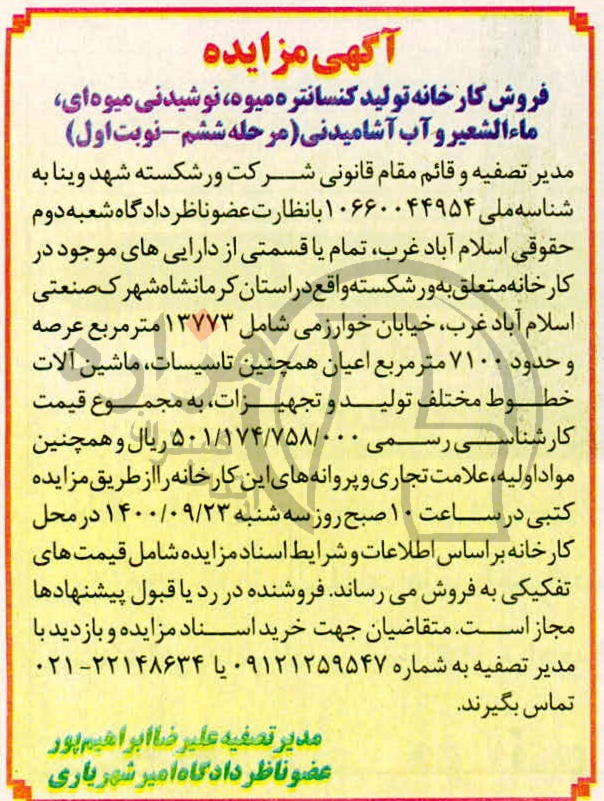 آگهی مزایده
فروش کارخانه تولید کنسانتره میوه، نوشیدنی میوه‌ای،
ماءالشعیر و آب آشامیدنی (مرحله ششم – نوبت اول)
مدیر تصفیه و قائم مقام قانونی شرکت ورشکسته شهد وینا به
شناسه ملی ۱۰۶۶۰۰۴۴۹۵۴ با نظارت عضو ناظر دادگاه شعبه دوم
حقوقی اسلام آباد غرب، تمام یا قسمتی از دارایی های موجود در
کارخانه متعلق به ورشکسته واقع در استان کرمانشاه شهرک صنعتی
اسلام آباد غرب، خیابان خوارزمی شامل ۱۳۷۷۳ متر مربع عرصه
و حدود ۷۱۰۰ متر مربع اعیان همچنین تاسیسات، ماشین آلات
خطوط مختلف تولید و تجهیزات، به مجموع قیمت
کارشناسی رسمی ۵۰۱/۱۷۴/۷۵۸/۰۰۰ ریال و همچنین
مواد اولیه، علامت تجاری و پروانه های این کارخانه را از طریق مزایده
کتبی در ساعت ۱۰ صبح روز سه شنبه ۱۴۰۰/۰۹/۲۳ در محل
کارخانه بر اساس اطلاعات و شرایط اسناد مزایده شامل قیمت های
تفکیکی به فروش می رساند. فروشنده در رد یا قبول پیشنهادها
مجاز است. متقاضیان جهت خرید اسناد مزایده و بازدید با
مدیر تصفیه به شماره ۰۹۱۲۱۲۵۹۵۴۷ یا ۲۲۱۴۸۶۳۴-۰۲۱
تماس بگیرند.
مدیر تصفیه علیرضا ابراهیم پور
عضو ناظر دادگاه امیر شهریاری